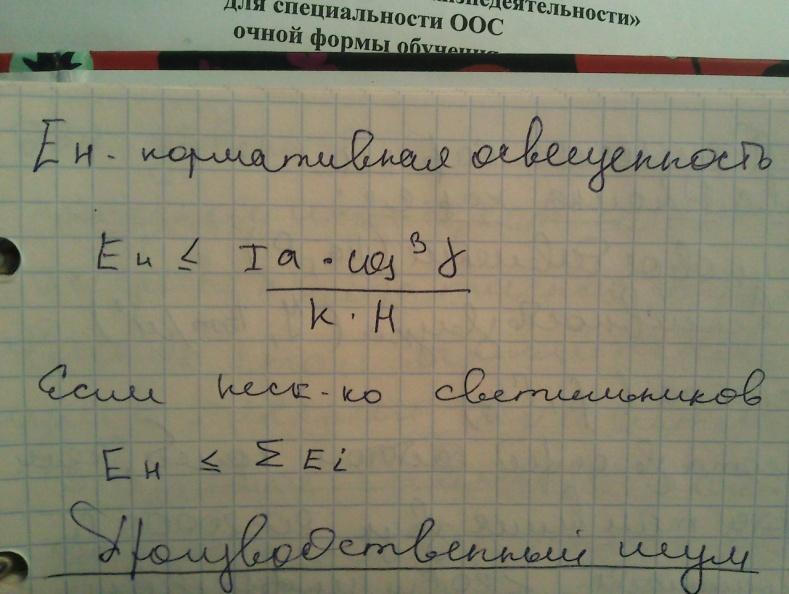 для специальности ООС
очной формы обучения
Ен - нормативная освещенность
Ен ≤ Iα · cos³γ
к · Н
Если неск-ко светильников
Ен ≤ Σ Ei
Производственный шум